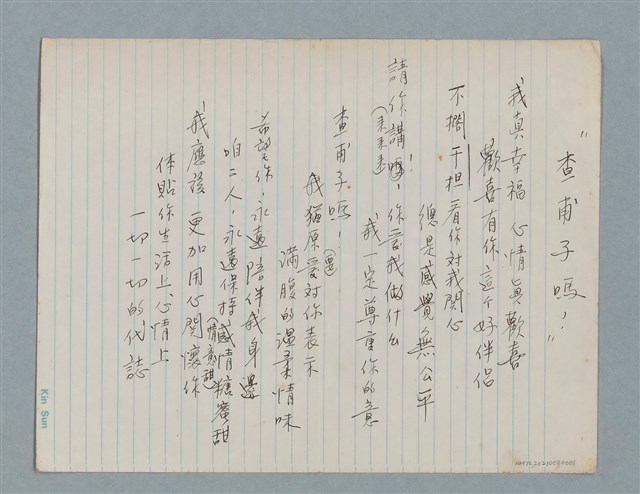 “查甫子嗎！”
我真幸福 心情真歡喜
歡喜有你這个好伴侶
不擱干担看你对我関心
總是感覺無公平
請你講！你愛我做什么
我一定尊重你的意
查甫子嗎！
我猶原愛对你表示
(還)
滿腹的温柔情味
希望你，永遠陪伴我身邊
咱二人，永遠保持感情糖蜜甜
(情意甜)
我應該更加用心関懷你
体貼你生活上心情上
一切一切的代誌
Kin Sun